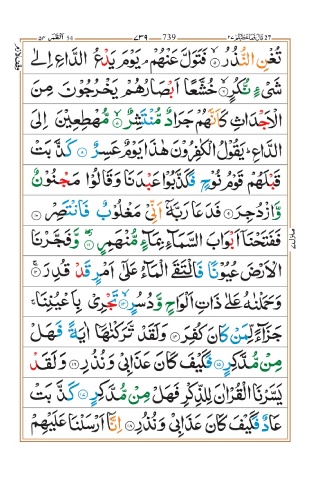 القمر ٥٤ ٧٣٩ 739 قال فما خطبكم ٢٧
تُغْنِ النُّذُرُ ۙ‏﴿۵﴾ فَتَوَلَّ عَنْهُمْ ۘ يَوْمَ يَدْعُ الدَّاعِ اِلٰى
شَىْءٍ نُّكُرٍ ۙ‏﴿۶﴾ خُشَّعًا اَبْصَارُهُمْ يَخْرُجُوْنَ مِنَ
الْاَجْدَاثِ كَاَنَّهُمْ جَرَادٌ مُّنْتَشِرٌ ۙ‏﴿۷﴾ مُّهْطِعِيْنَ اِلَى
الدَّاعِ ؕ يَقُوْلُ الْكٰفِرُوْنَ هٰذَا يَوْمٌ عَسِرٌ‏﴿۸﴾ كَذَّبَتْ
قَبْلَهُمْ قَوْمُ نُوْحٍ فَكَذَّبُوْا عَبْدَنَا وَقَالُوْا مَجْنُوْنٌ
وَّازْدُجِرَ‏﴿۹﴾ فَدَعَا رَبَّهٗۤ اَنِّىْ مَغْلُوْبٌ فَانْتَصِرْ‏﴿۱۰﴾
فَفَتَحْنَاۤ اَبْوَابَ السَّمَآءِ بِمَآءٍ مُّنْهَمِرٍ ۖ‏﴿۱۱﴾ وَّفَجَّرْنَا
الْاَرْضَ عُيُوْنًا فَالْتَقَى الْمَآءُ عَلٰٓى اَمْرٍ قَدْ قُدِرَ ۚ‏﴿۱۲﴾
وَحَمَلْنٰهُ عَلٰى ذَاتِ اَلْوَاحٍ وَّدُسُرٍ ۙ‏﴿۱۳﴾ تَجْرِىْ بِاَعْيُنِنَا ۚ
جَزَآءً لِّمَنْ كَانَ كُفِرَ‏﴿۱۴﴾ وَلَقَدْ تَّرَكْنٰهَاۤ اٰيَةً فَهَلْ
مِنْ مُّدَّكِرٍ‏﴿۱۵﴾ فَكَيْفَ كَانَ عَذَابِىْ وَنُذُرِ‏﴿۱۶﴾ وَلَقَدْ
يَسَّرْنَا الْقُرْاٰنَ لِلذِّكْرِ فَهَلْ مِنْ مُّدَّكِرٍ‏﴿۱۷﴾ كَذَّبَتْ
عَادٌ فَكَيْفَ كَانَ عَذَابِىْ وَنُذُرِ‏﴿۱۸﴾ اِنَّاۤ اَرْسَلْنَا عَلَيْهِمْ